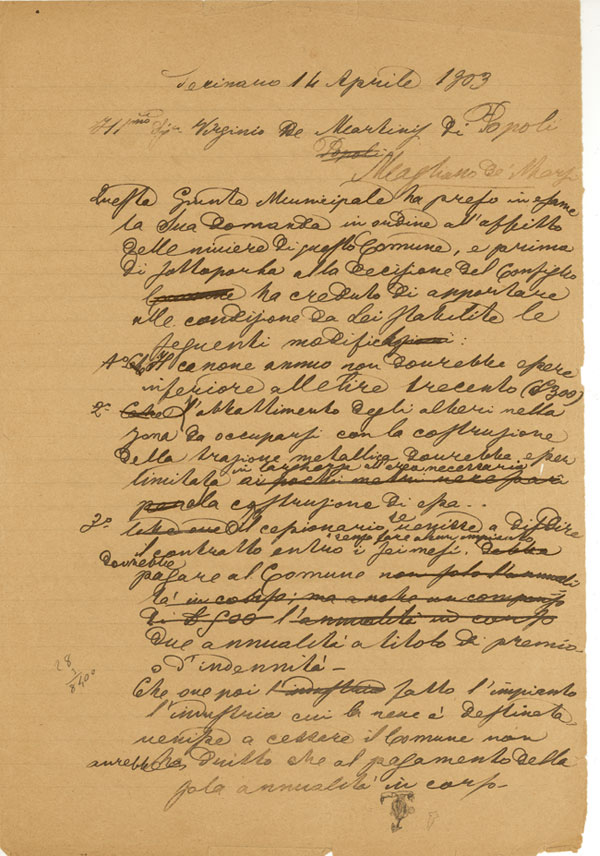 Secinaro 14 Aprile 1903
Ill.mo Sig. Virginio De Martinis di Popoli
Popoli
Magliano de' Marsi
Questa Giunta Municipale ha preso in esame
la Sua domanda in ordine all'affitto
delle niviere di questo Comune, e prima
di sottoporla alla decisione del Consiglio
ha creduto di apportare
alle condizione da Lei stabilite le
seguenti modifiche:
1° Il canone annuo non dovrebbe essere
inferiore alle lire trecento (£300)
2° l'abbattimento degli alberi nella
zona da occuparsi con la costruzione
della trazione metallica dovrebbe esser
in larghezza all'area necessaria
limitata ai pochi metri necessari
per la costruzione di essa..
3° il cessionario se venisse a disdire
senza fare alcun impianto
il contratto entro i sei mesi.
dovrebbe
pagare al Comune non solo l'annuali
tà in corso; ma anche un compenso
di £500 l'annualità in corso
due annualità a titolo di premio
o d'indennità –
Che ove poi l'industria fatto l'impianto
l'industria cui la neve è destinata
venisse a cessare il Comune non
avrebbe dritto che al pagamento della
sola annualità in corso
28